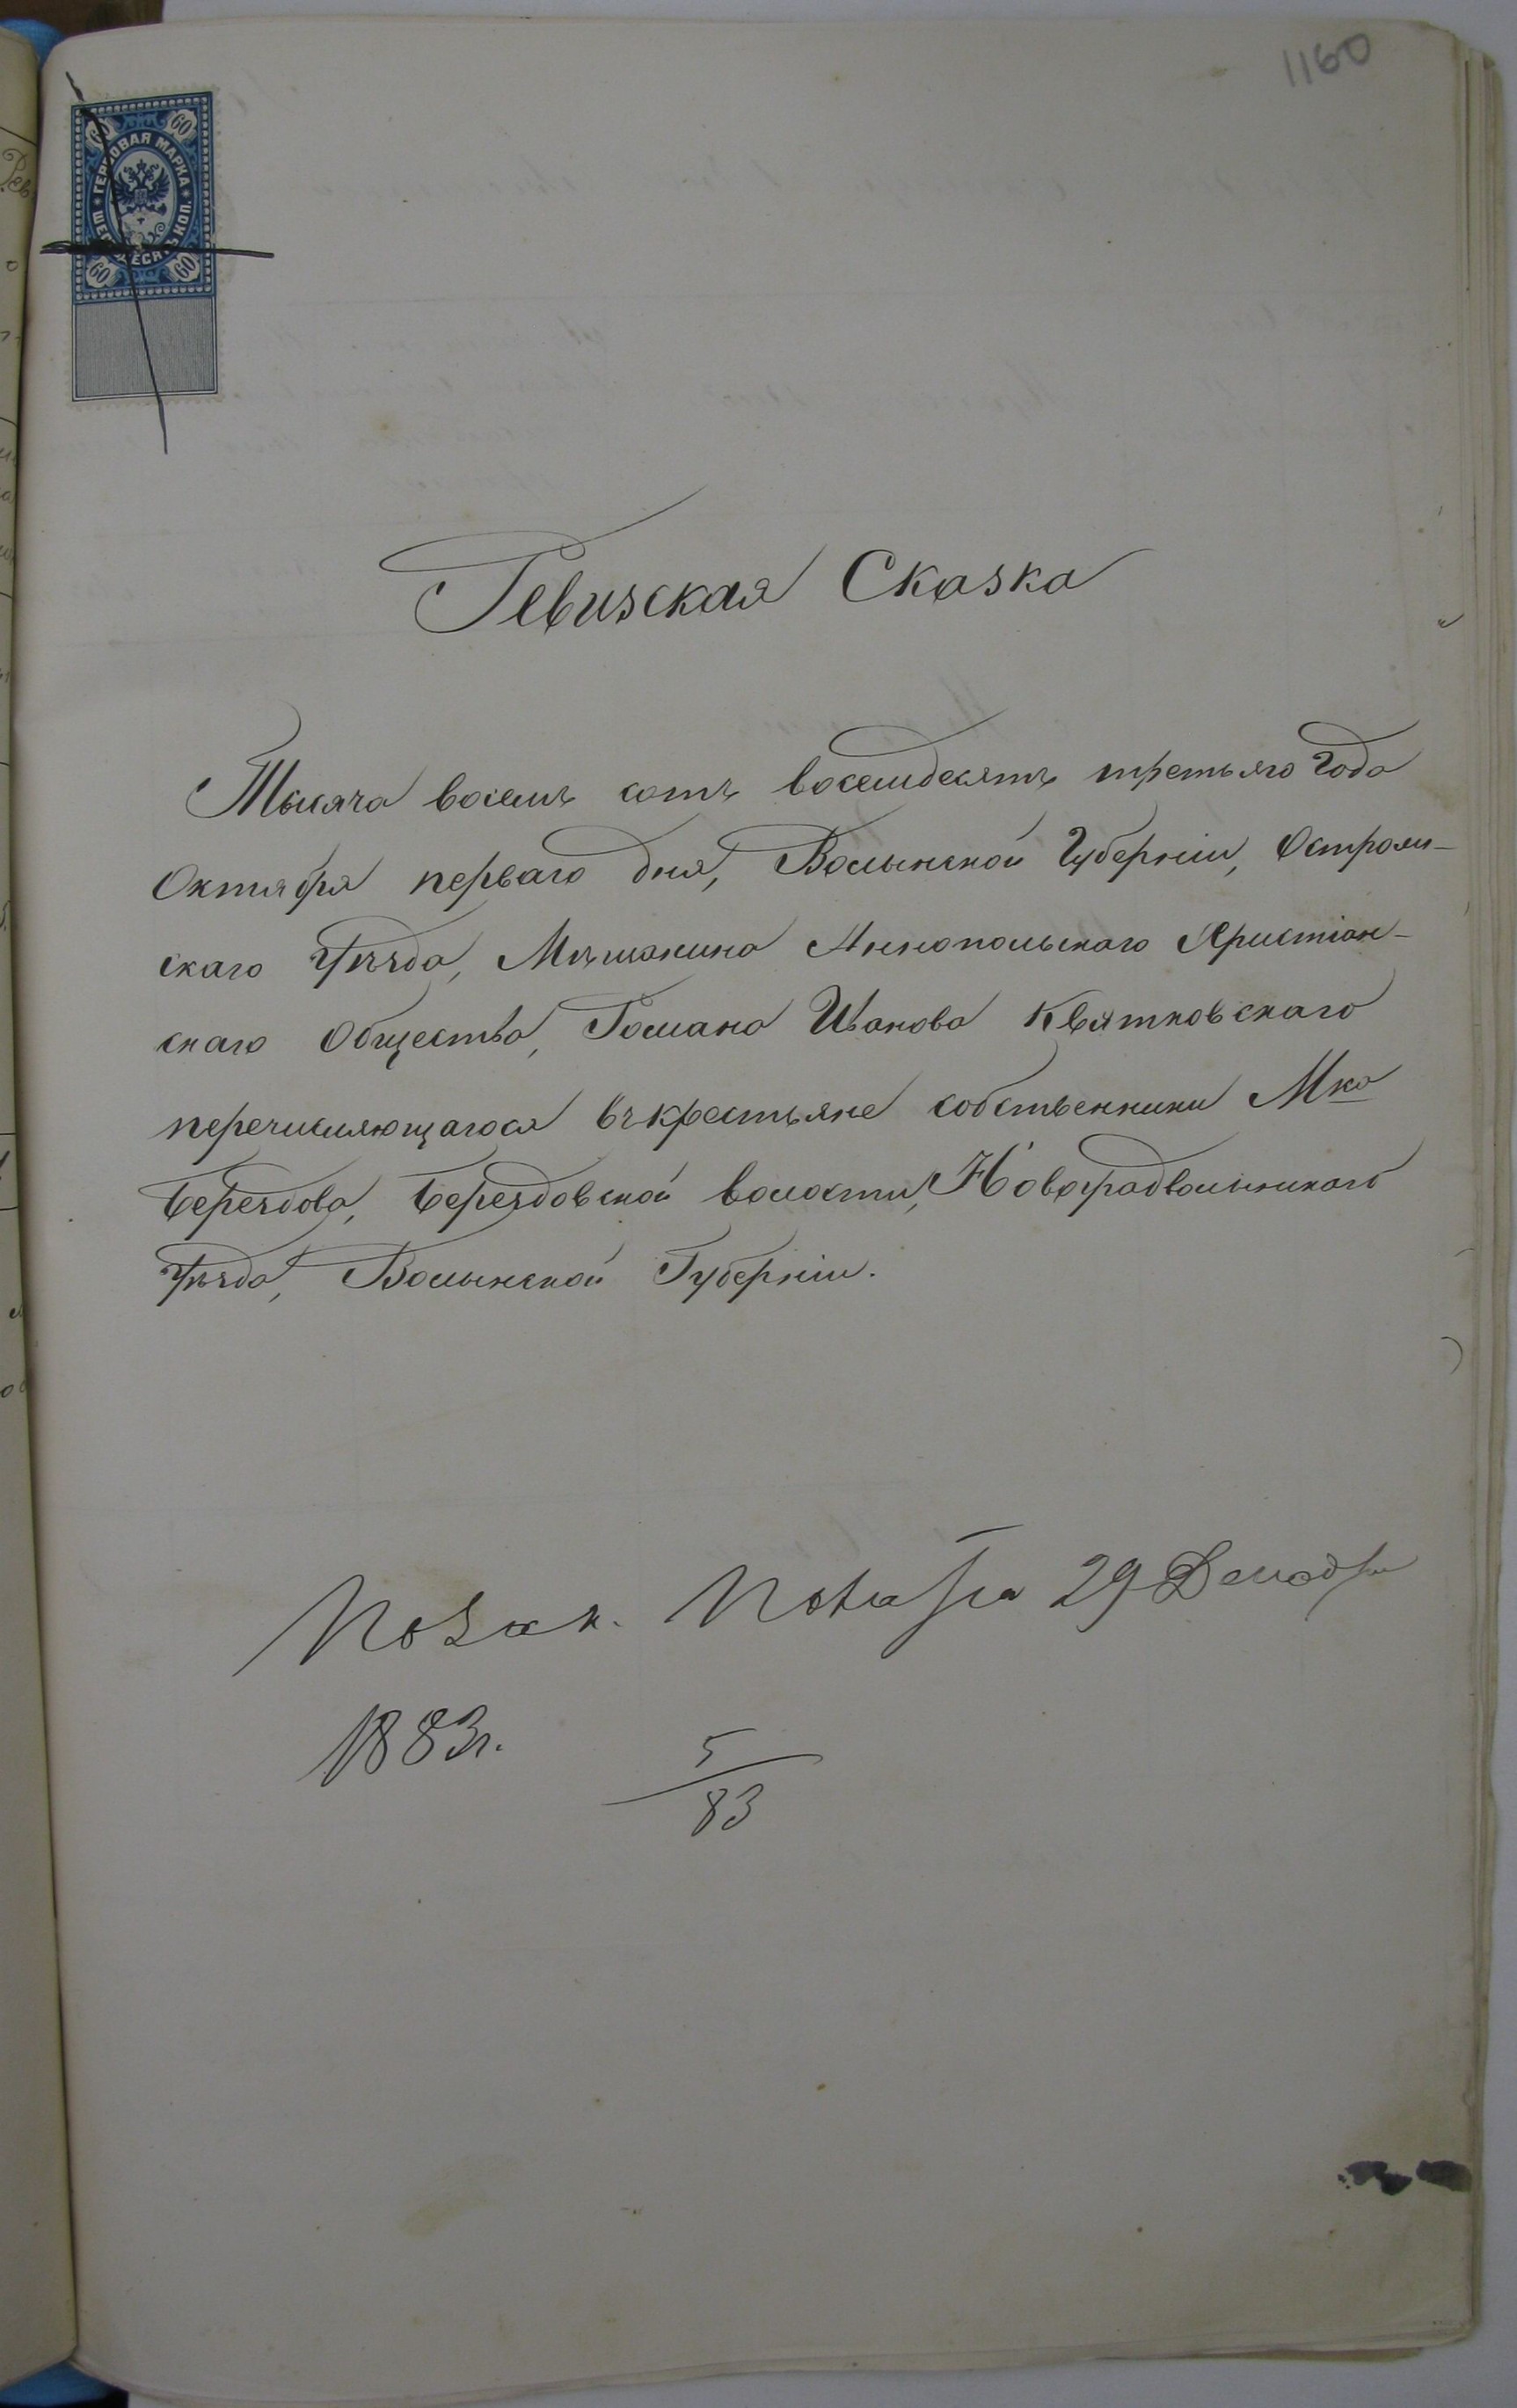 1160
60 60
ГЕРБОВАЯ МАРКА
ШЕСТЬДЕСЯТЪ КОП.
60 60
Ревизская Сказка
Тысяча восемь сотъ восемдесятъ третьяго года
Октября перваго дня, Волынской Губерніи, Острож-
скаго Уѣзда, Мѣщанина Аннопольскаго Христіан-
скаго Общества, Романа Иванова Квятковскаго
перечисляющагося въ крестьяне собственники Мка
Берездова, Берездовской волости, Новоградволынскаго
Уѣзда, Волынской Губерніи.
29 Декабря
1883г.
5
83